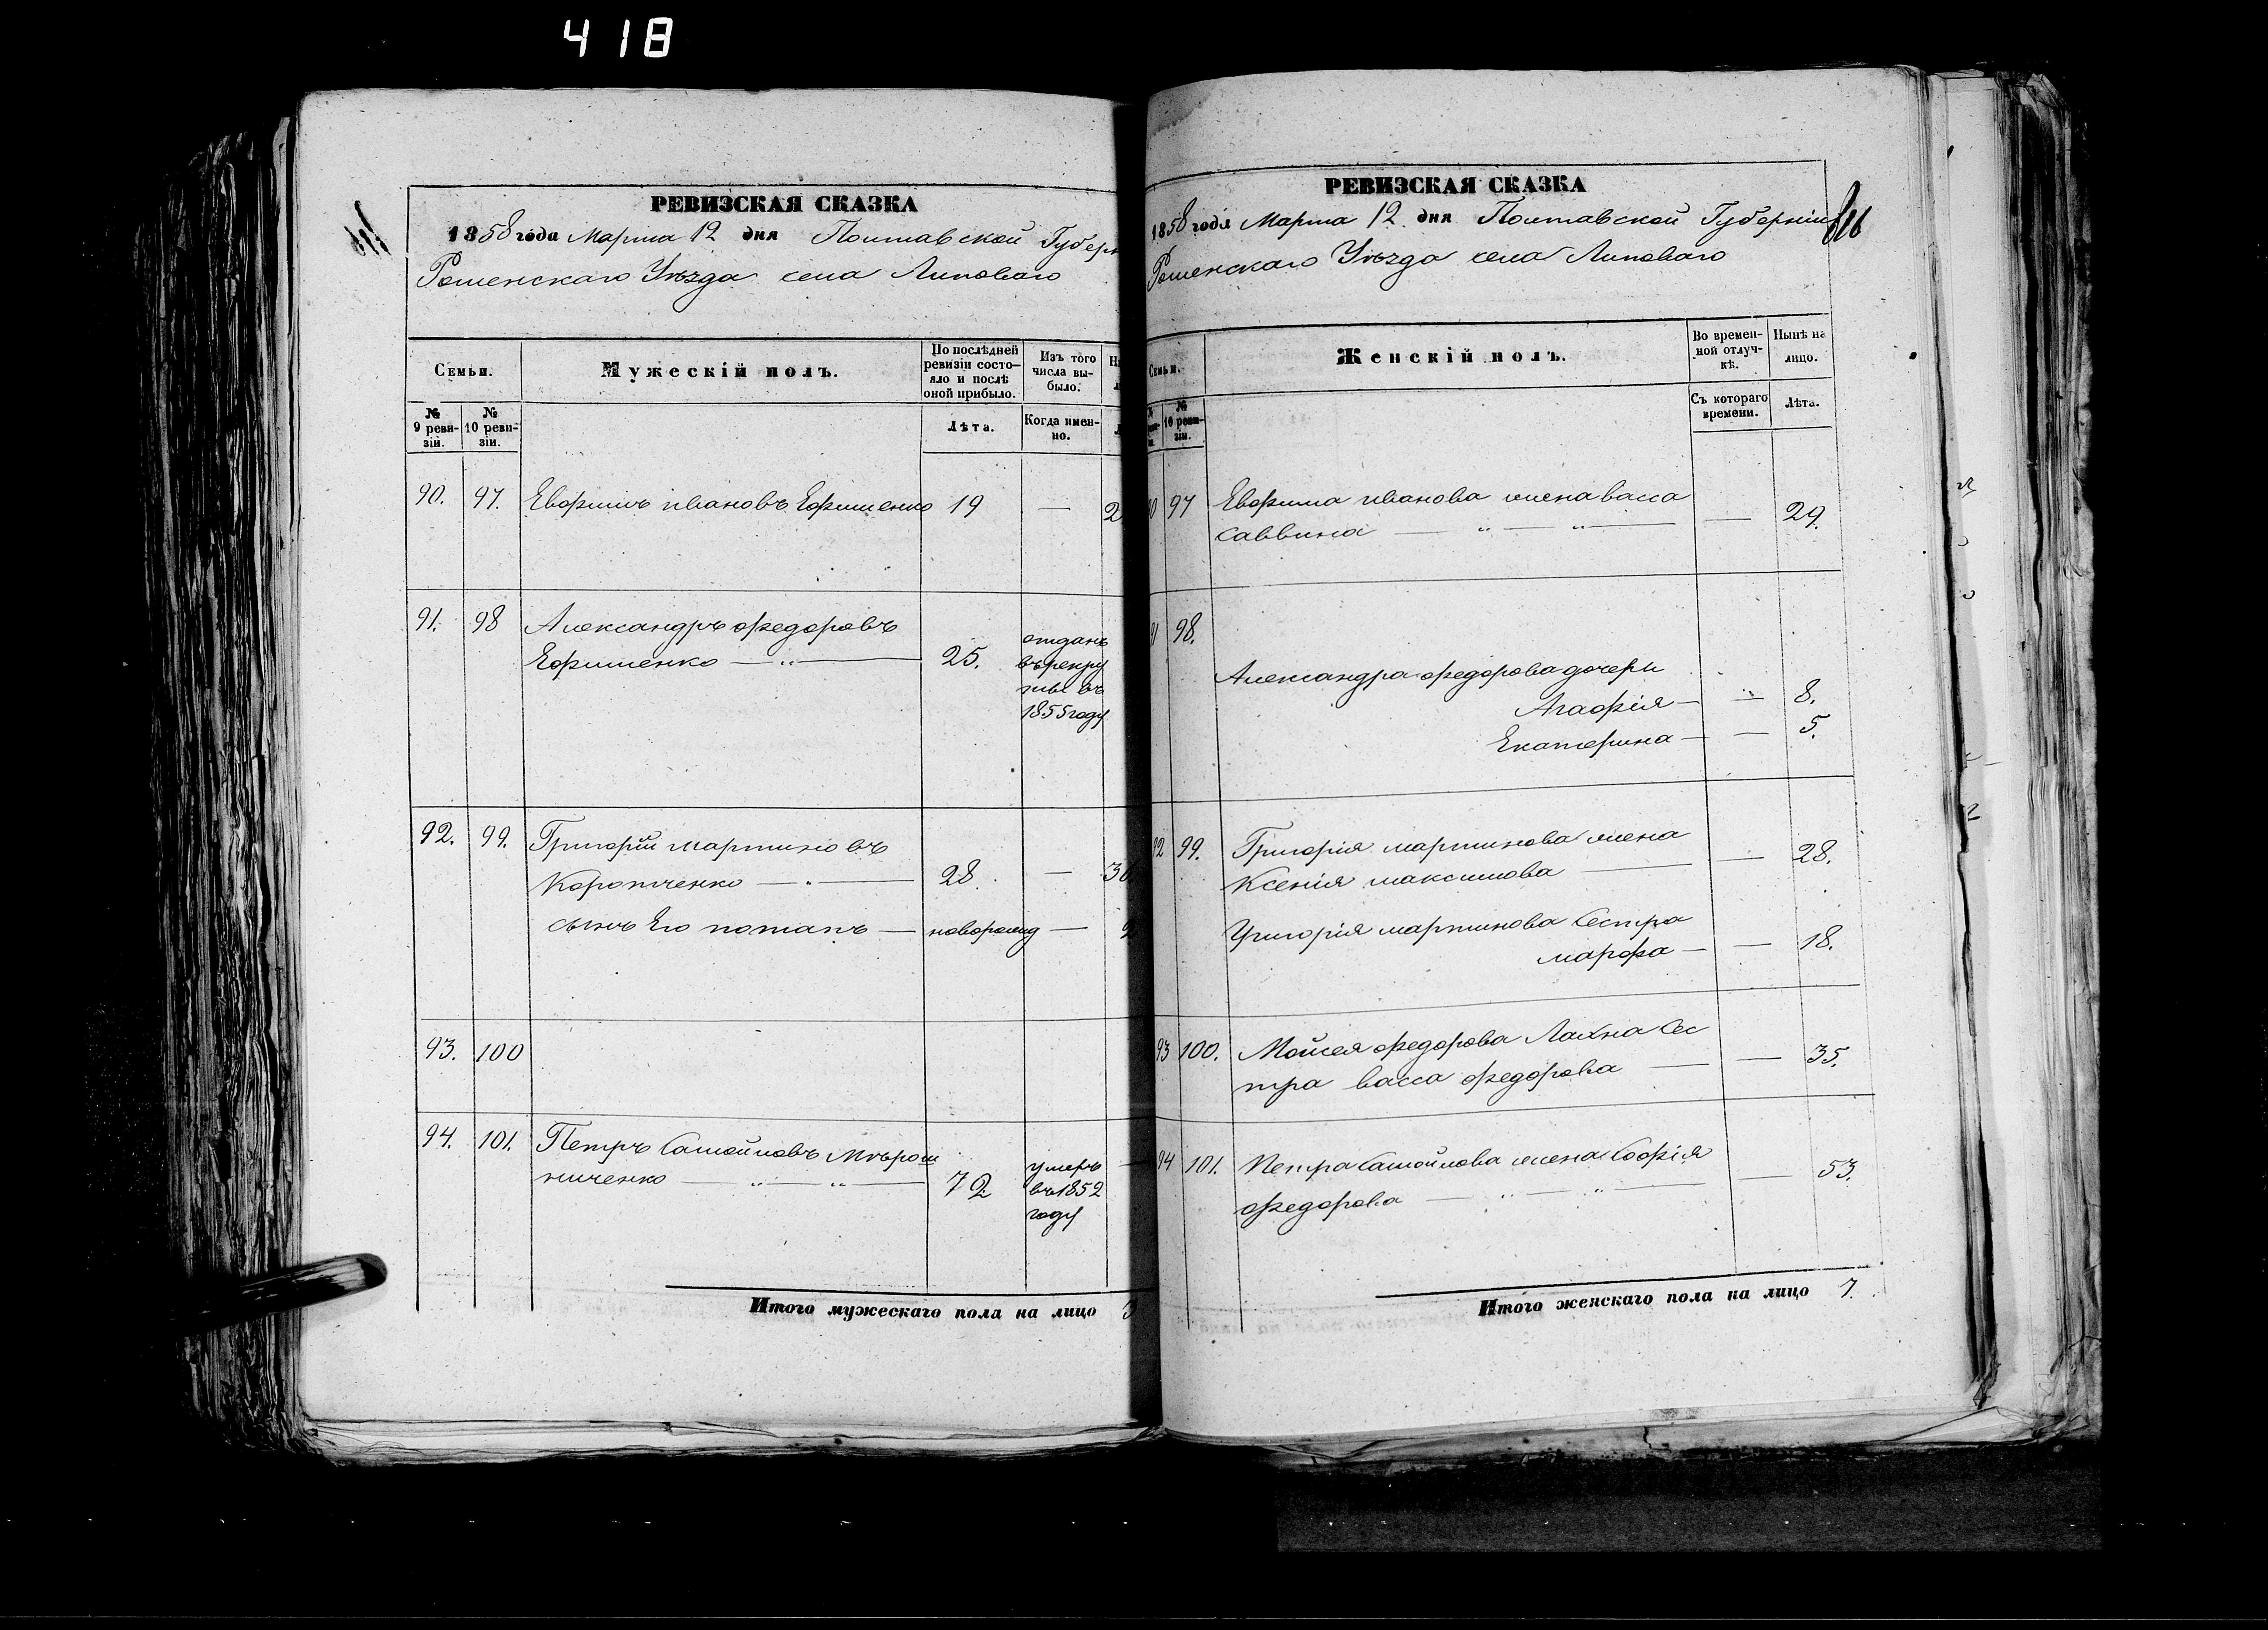 418
РЕВИЗСКАЯ СКАЗКА
1858 года Марта 12 дня Полтавской Губерн
Роменскаго Уѣзда села Липоваго
Семьи.
Мужескій полъ.
По послѣдней
ревизіи состо-
яло и послѣ
оной прибыло.
Изъ того
числа вы-
было.
№
9 реви-
зіи.
№
10 реви-
зіи.
Лѣта.
Когда имен-
но.
90. 97. Евфимъ ивановъ Ефименко 19 — 2
91. 98 Александръ федоровъ
Ефименко — „ — 25.
отданъ
въ рекру
ты въ
1855 году
92. 99. Григорій мартиновъ
Коропченко — „ — 28. — 3
сынъ Его потапъ — новорожд —
93. 100
94. 101. Петръ Самойловъ Мѣрош
ниченко — „ — „ — 72
умеръ
въ 1852
году
—
Итого мужескаго пола на лицо 3
РЕВИЗСКАЯ СКАЗКА
1858 года Марта 12 дня Полтавской Губерніи
Роменскаго Уѣзда села Липоваго
Семьи.
Женскій полъ.
Во времен-
ной отлуч-
кѣ.
Нынѣ на
лицо.
№
10 реви-
зіи.
Съ котораго
времени.
Лѣта.
0 97 Евфима иванова жена васса
саввина — „ — „ — — 29.
1 98.
Александра федорова дочери
Агафія — — 8.
Екатерина — — 5.
92 99. Григорія мартинова жена
Ксенія максимова — — 28.
Григорія мартинова Сестра
марфа — — 18.
93 100. Мойсея федорова Лахна Сес
тра васса федорова — — 35.
94 101. Петра Самойлова жена Софія
федорова — „ — „ — — 53.
Итого женскаго пола на лицо 7.